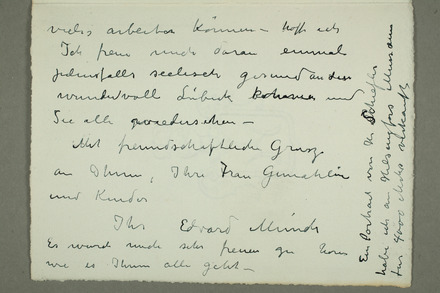 vieles arbeiten können – hoffe ich
Ich freue mich daran einmal
jedenfalls seelisch gesund an den
wundervoll Lübeck und
Sie alle wiedersehen –
Mit freundschaftliche Grusz
an Ihnen, Ihre Frau Gemahlin
und Kinder
Ihr Edvard Munch
Es würde mich sehr freuen zu hören
wie es Ihnen alle geht –
Ein Portrait von Hr Schiefler
habe ich an Helsingfors Museum
für 4000 Mark verkauft